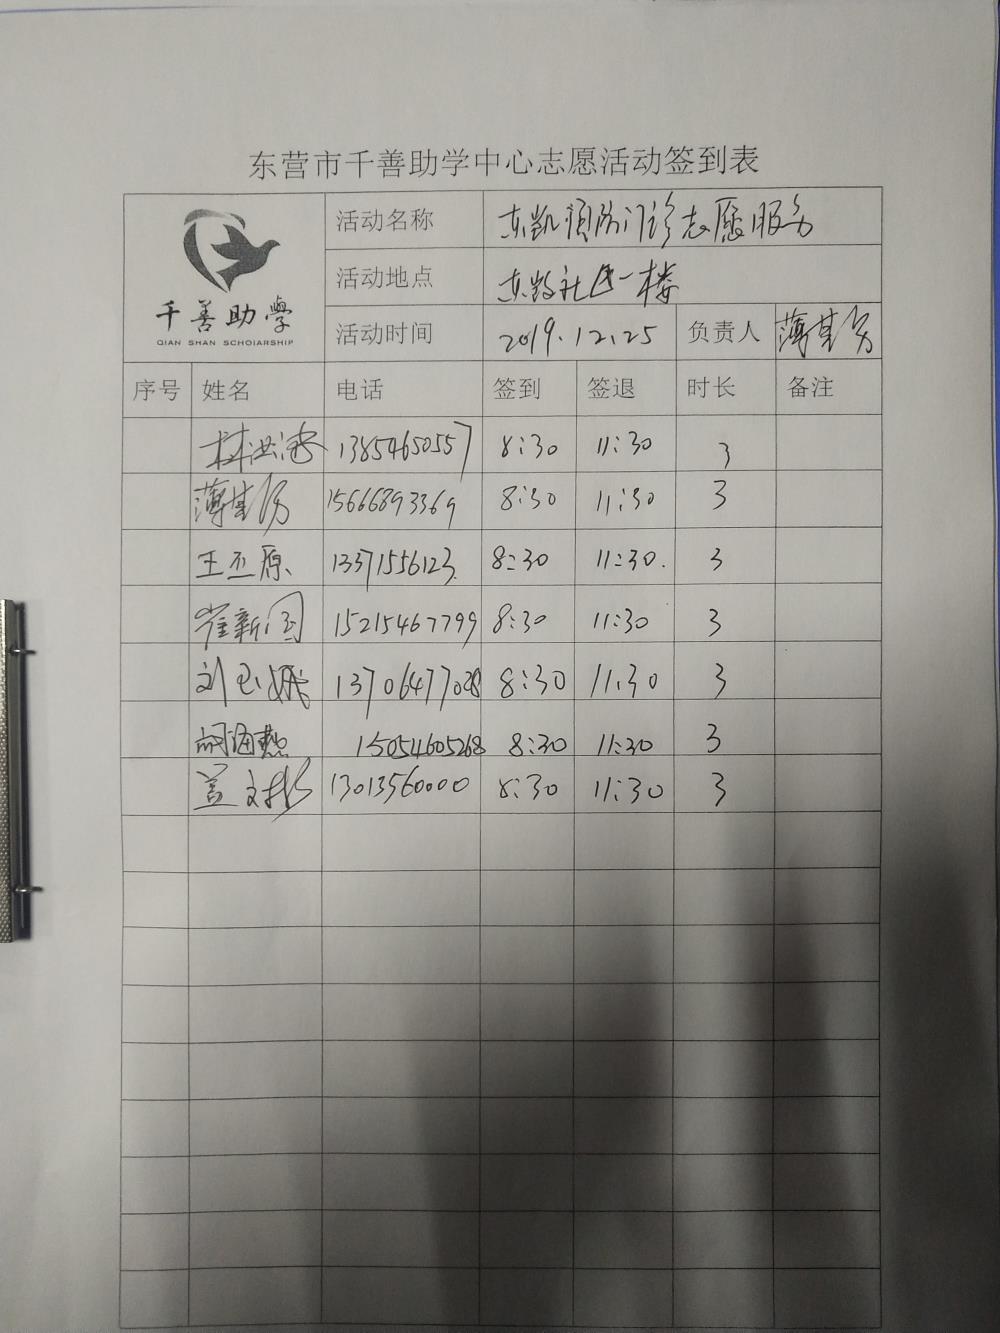 东营市千善助学中心志愿活动签到表
千善助學
QIAN SHAN SCHOIARSHIP
活动名称 东凯预防门诊志愿服务
活动地点 东凯社区一楼
活动时间 2019.12.25 负责人 薄其
序号 姓名 电话 签到 签退 时长 备注
林洪 13854650557 8:30 11:30 3
薄其 15666893369 8:30 11:30 3
王丕原 13371556123 8:30 11:30. 3
崔新国 15215467799 8:30 11:30 3
刘玉娥 13706477028 8:30 11:30 3
海燕 15054605268 8:30 11:30 3
盖文 13013560000 8:30 11:30 3